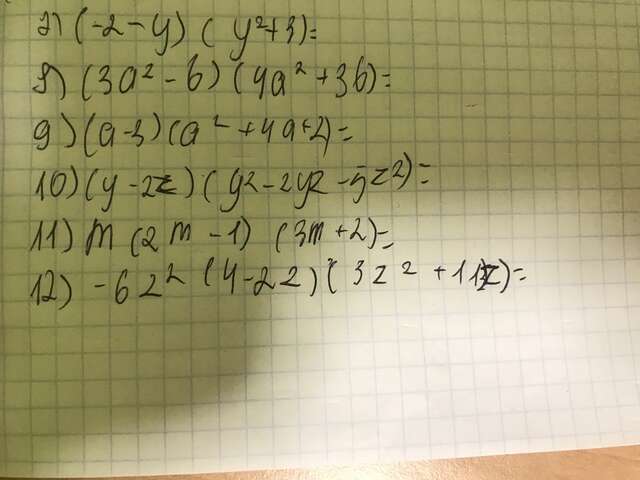 7) (-2 - y) (y² + 3) =
8) (3a² - b) (4a² + 3b) =
9) (a - 3) (a² + 4a + 2) =
10) (y - 2z) (y² - 2yz - 5z²) =
11) m (2m - 1) (3m + 2) =
12) - 6z² (4 - 2z)² (3z² + 11z) =